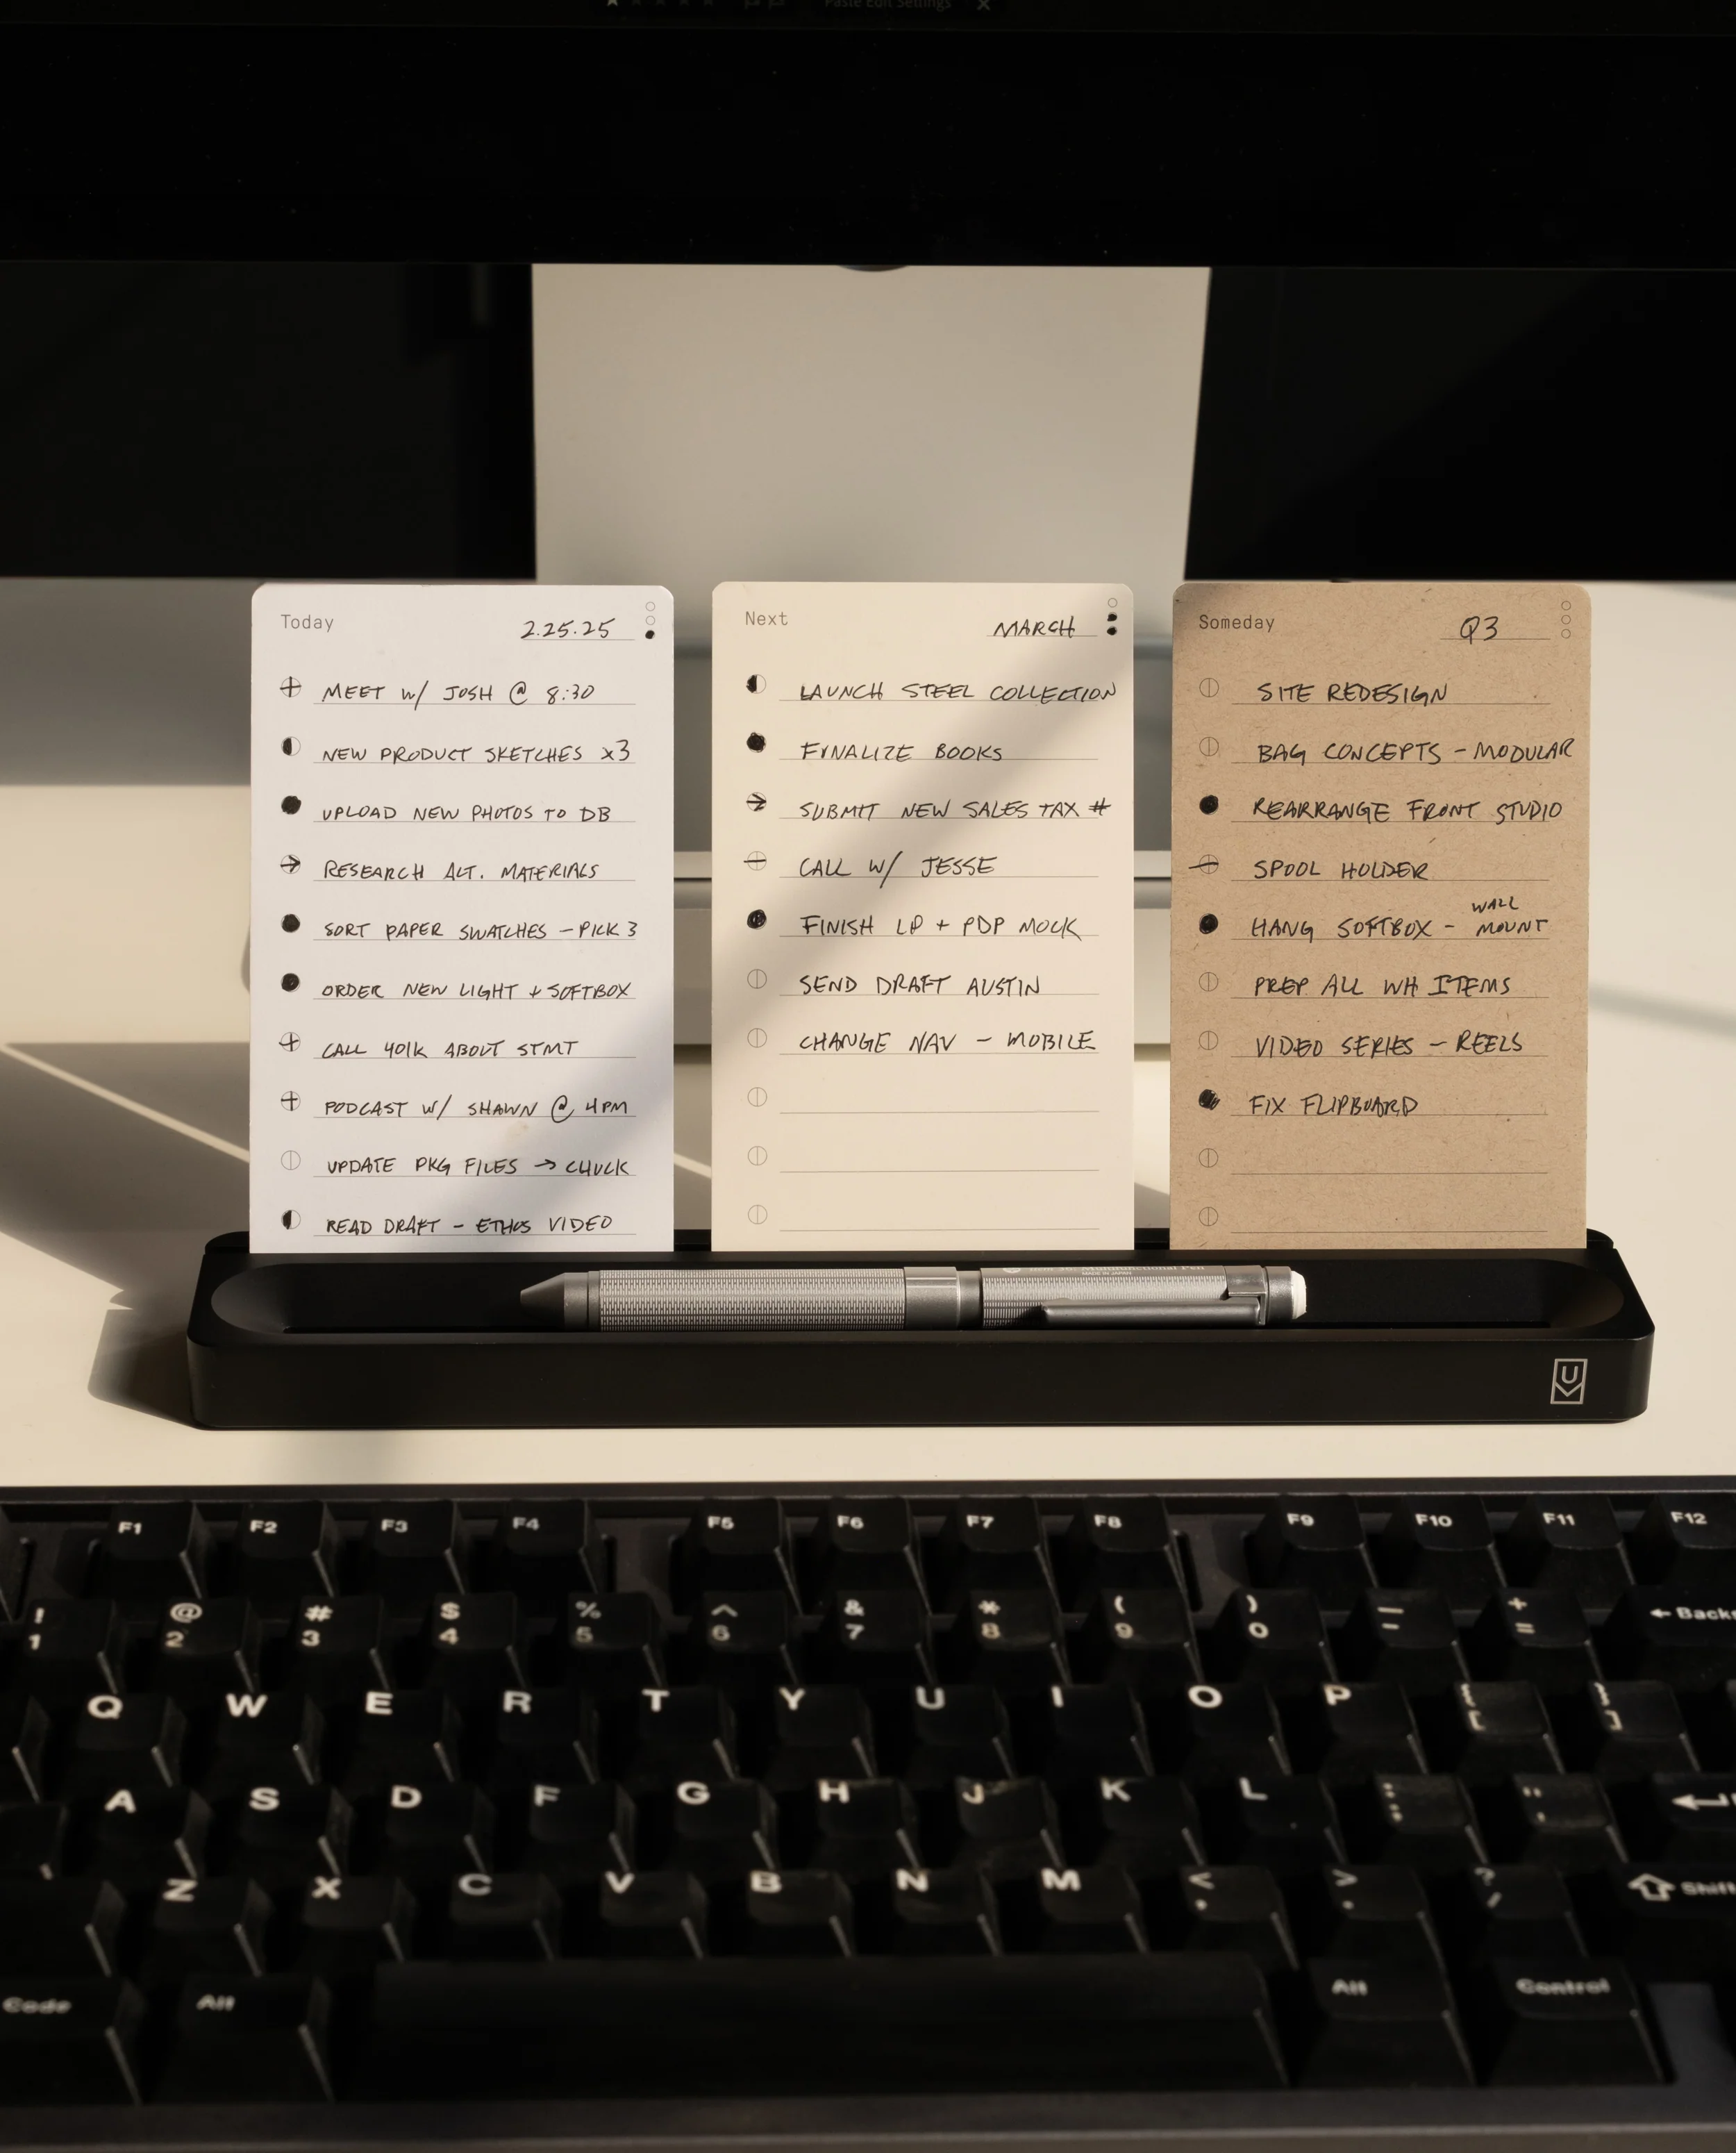 Paste Edit Settings
Today 2.25.25
MEET W/ JOSH @ 8:30
NEW PRODUCT SKETCHES x3
UPLOAD NEW PHOTOS TO DB
RESEARCH ALT. MATERIALS
SORT PAPER SWATCHES – PICK 3
ORDER NEW LIGHT + SOFTBOX
CALL 401K ABOUT STMT
PODCAST W/ SHAWN @ 4PM
UPDATE PKG FILES → CHUCK
READ DRAFT – ETHOS VIDEO
Next MARCH
LAUNCH STEEL COLLECTION
FINALIZE BOOKS
SUBMIT NEW SALES TAX #
CALL W/ JESSE
FINISH LP + PDP MOCK
SEND DRAFT AUSTIN
CHANGE NAV – MOBILE
Someday Q3
SITE REDESIGN
BAG CONCEPTS – MODULAR
REARRANGE FRONT STUDIO
SPOOL HOLDER
HANG SOFTBOX – WALL MOUNT
PREP ALL WH ITEMS
VIDEO SERIES – REELS
FIX FLIPBOARD
Multifunctional Pen
MADE IN JAPAN
U
F1 F2 F3 F4 F5 F6 F7 F8 F9 F10 F11 F12
! @ # $ % ^ & * ( ) — +
1 2 3 4 5 6 7 8 9 0 - = ← Backs
Q W E R T Y U I O P { }
[ ]
A S D F G H J K L : "
; '
Z X C V B N M < > ? Shift
, . /
Code Alt Alt Control